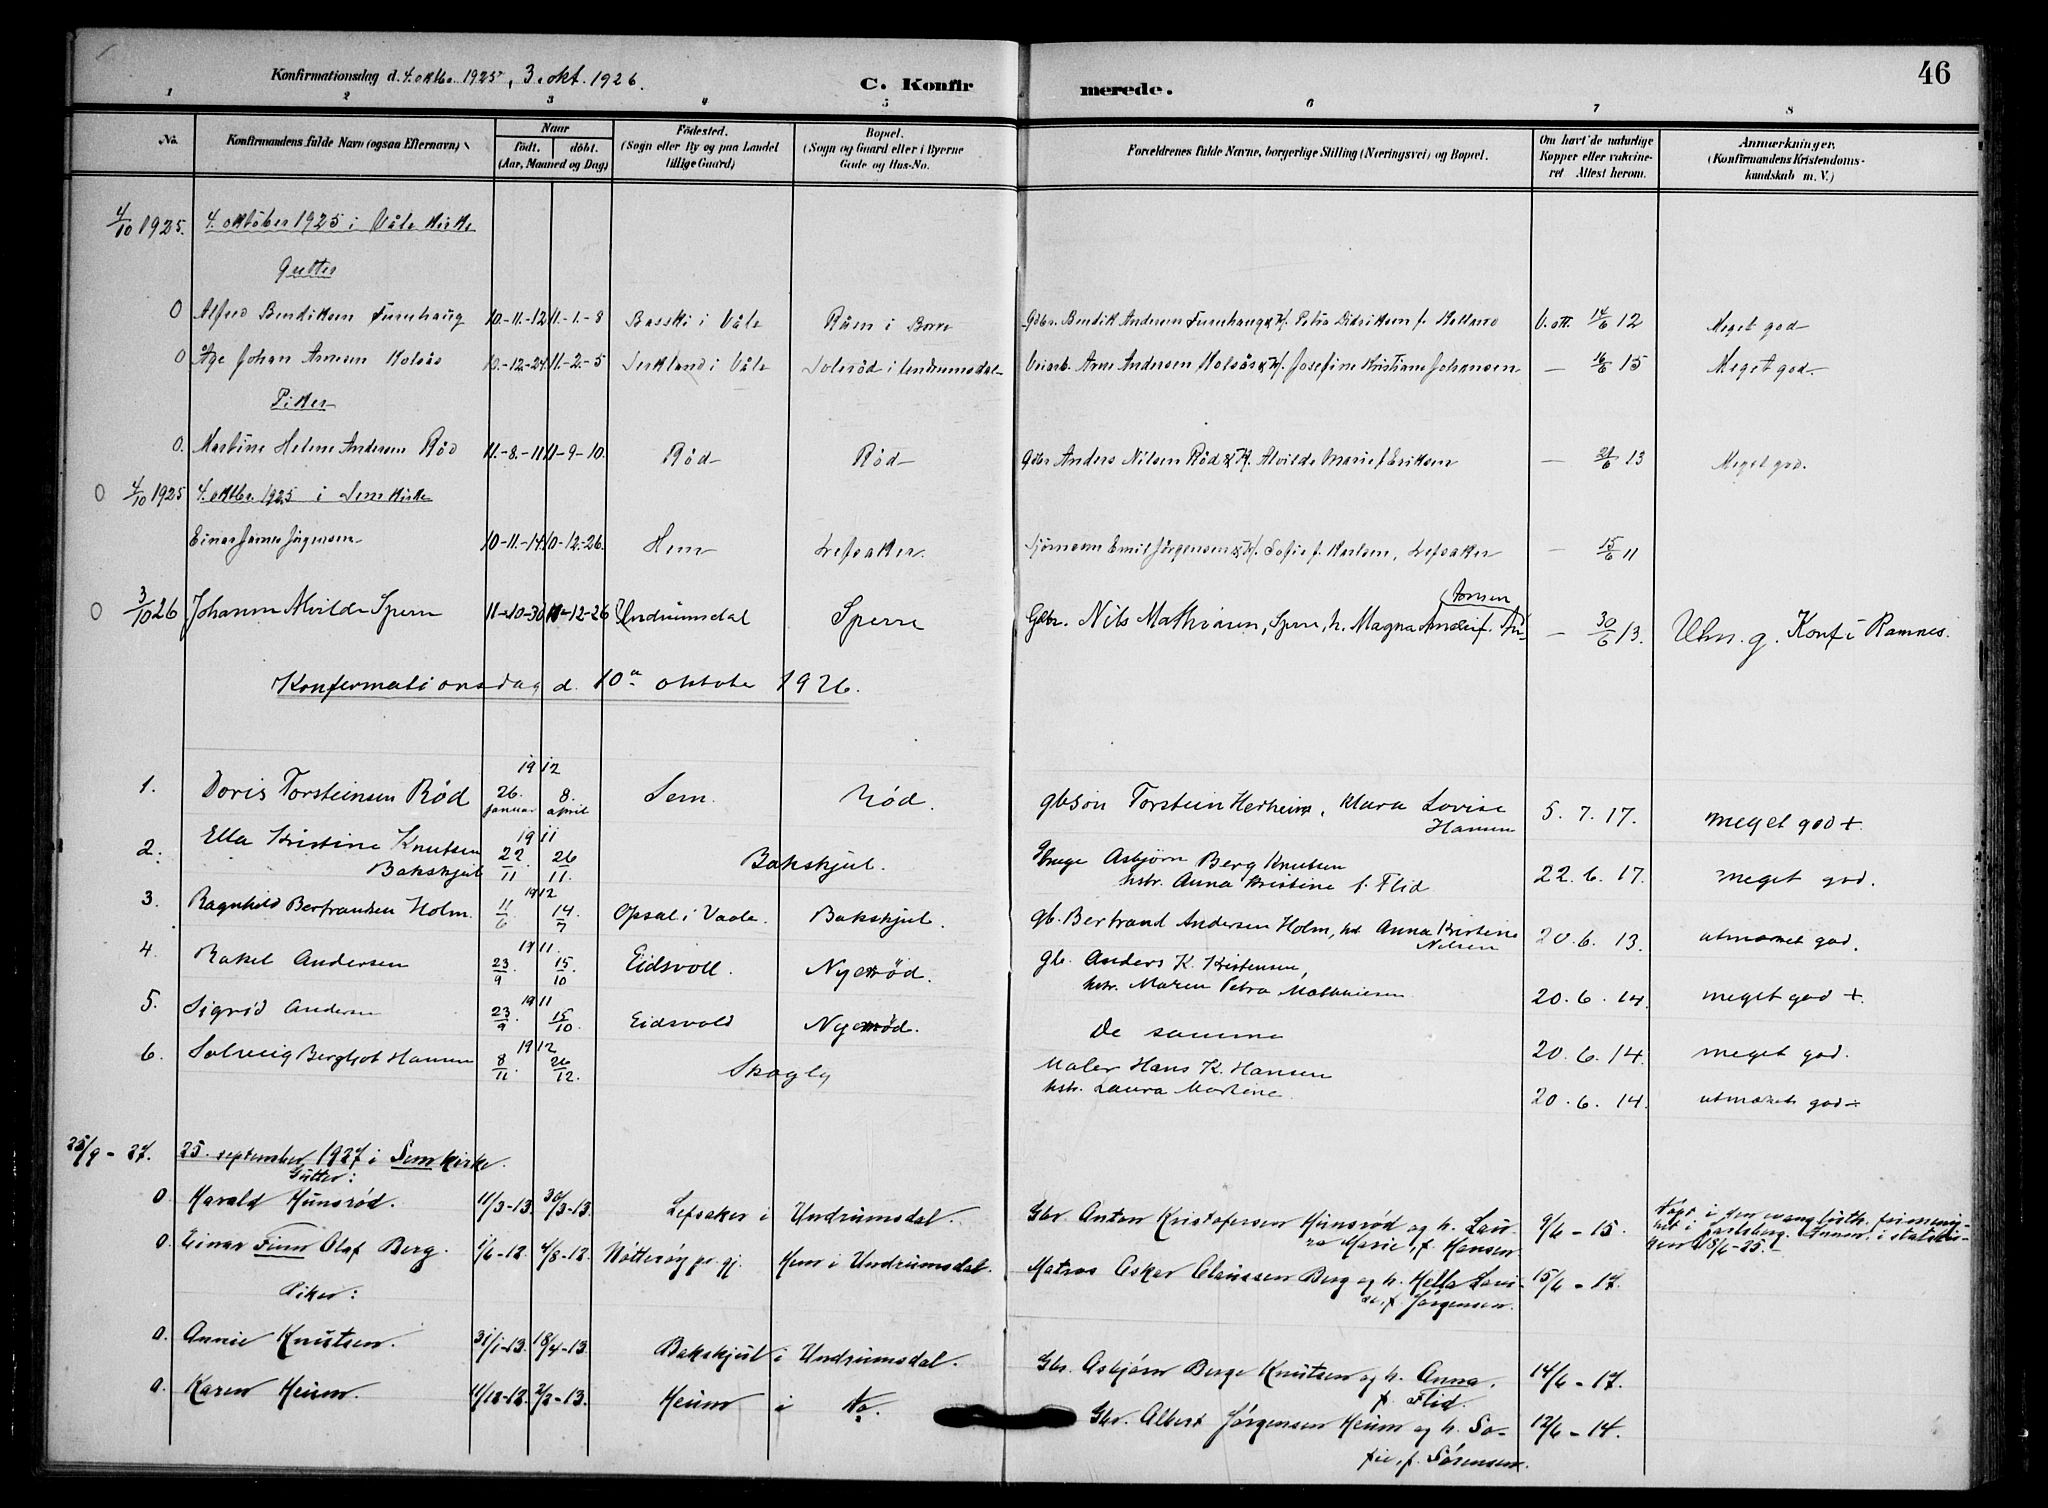 46
Konfirmationsdag d. 4. oktbr. 1925, 3. okt. 1926.
C. Konfirmerede.
1 2 3 4 5 6 7 8
No. Konfirmandens fulde Navn (ogsaa Efternavn) Naar födt. döbt. (Aar, Maaned og Dag) Födested. (Sogn eller By og paa Landet tillige Gaard) Bopæl. (Sogn og Gaard eller i Byerne Gade og Hus-No. Forældrenes fulde Navne, borgerlige Stilling (Næringsvei) og Bopæl. Om havt de naturlige Kopper eller vakcineret Attest herom. Anmærkninger. (Konfirmandens Kristendomskundskab m. V.)
4/10 1925. 4. oktober 1925 i Våle kirke
Gutter
0 Alfred Bendiksen Furuhaug 10-11-12 11-1-8 Basski i Våle Råen i Borre Gdbr. Bendik Andersen Furuhaug & H. Petra Didriksen f. Holland V. att. 14/6 12 Meget god
0 Åge Johan Arnesen Holsås 10-12-24 11-2-5 i Våle Solerød i Undrumsdal Veiarb. Arne Andersen Holsås & H. Josefine Kristiane Johansen — 16/6 15 Meget god.
Piker
0. Martine Helene Andersen Rød 11-8-11 11-9-10. Rød Rød Gdbr Anders Nilsen Rød & H. Alvilde Marie f Eriksen — 21/6 13 Meget god.
0 4/10 1925 4. oktbr. 1925 i Sem kirke
Einar James Jörgensen 10-11-14 10-12-26. Hem Lefsaker. Sjömann Emil Jörgensen & H. Sofie f. Karlsen, Lefsaker — 15/6 11
0 3/10 26 Johanne Alvilde Sperre 11-10-30 11-12-26 Undrumsdal Sperre Gdbr. Nils Mathisen, Sperre, h. Magna f. — 30/6 13. g. Konf i Ramnes.
Konfermationsdag d. 10de oktober 1926.
1. Doris Torsteinsen Rød 1912 26. januar 8. april Sem. Rød. gbsøn Torstein Herheim, Mara Lovise Hansen 5. 7. 17. meget god +.
2. Ella Kristine Knutsen Bakskjul 1911 22/11 26/11. Bakskjul. Asbjørn Berg Knutsen hstr. Anna Kristine f. Flid 22. 6. 17. meget god.
3. Ragnhild Bertrandsen Holm. 1912 11/6 14/7 Opsal i Vaale. Bakskjul. gb. Bertrand Andersen Holm, hst Anna Kristine Nilsen 20. 6. 13. utmerket god.
4. Rakel Andersen 1911. 23/9 15/10 Eidsvoll. Nyerød. gb. Anders K. Kristensen, hstr. Maren Petra Mathisen 20. 6. 14. meget god +.
5. Sigrid Andersen 1911 23/9 15/10. Eidsvold Nyerød. De samme 20. 6. 14. meget god.
6. Solveig Bergljot Hansen 1912 8/11 26/12. Skogly Maler Hans K. Hansen hstr. Laura Martine. 20. 6. 14. utmerket god ÷
25/9 - 27. 25. september 1927 i Sem kirke.
Gutter:
0. Harald Hunsrød. 11/3-13. 30/3-13. Lefsaker i Undrumsdal. Gbr. Anton Kristofersen Hunsrød og h. Laura Marie, f. Hansen. 9/6 - 15. Døpt i den evang. luth. frimenighet i Jarlsberg. i statskirken 18/6-25.
0. Einar Finn Olaf Berg. 1/6-12. 4/8-12. Nøtterøy pr. gj. Hem i Undrumsdal. Matros Oskar Claussen Berg og h. Hella Lovise, f. Jørgensen. 15/6 - 17.
Piker:
0. Annie Knutsen. 31/1-13. 18/4-13. Bakskjul i Undrumsdal. Gbr. Asbjørn Berge Knutsen og h. Anna, f. Flid. 14/6 - 17.
0. Karen Heum. 11/12-12. 2/2-13. Heum i No. Gbr. Albert Jørgensen Heum og h. Sofie, f. Sørensen. 12/6 - 14.